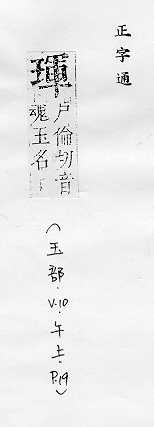 正字通
琿
戶倫切音
魂玉名
(玉部.V.10.午上.P.19)